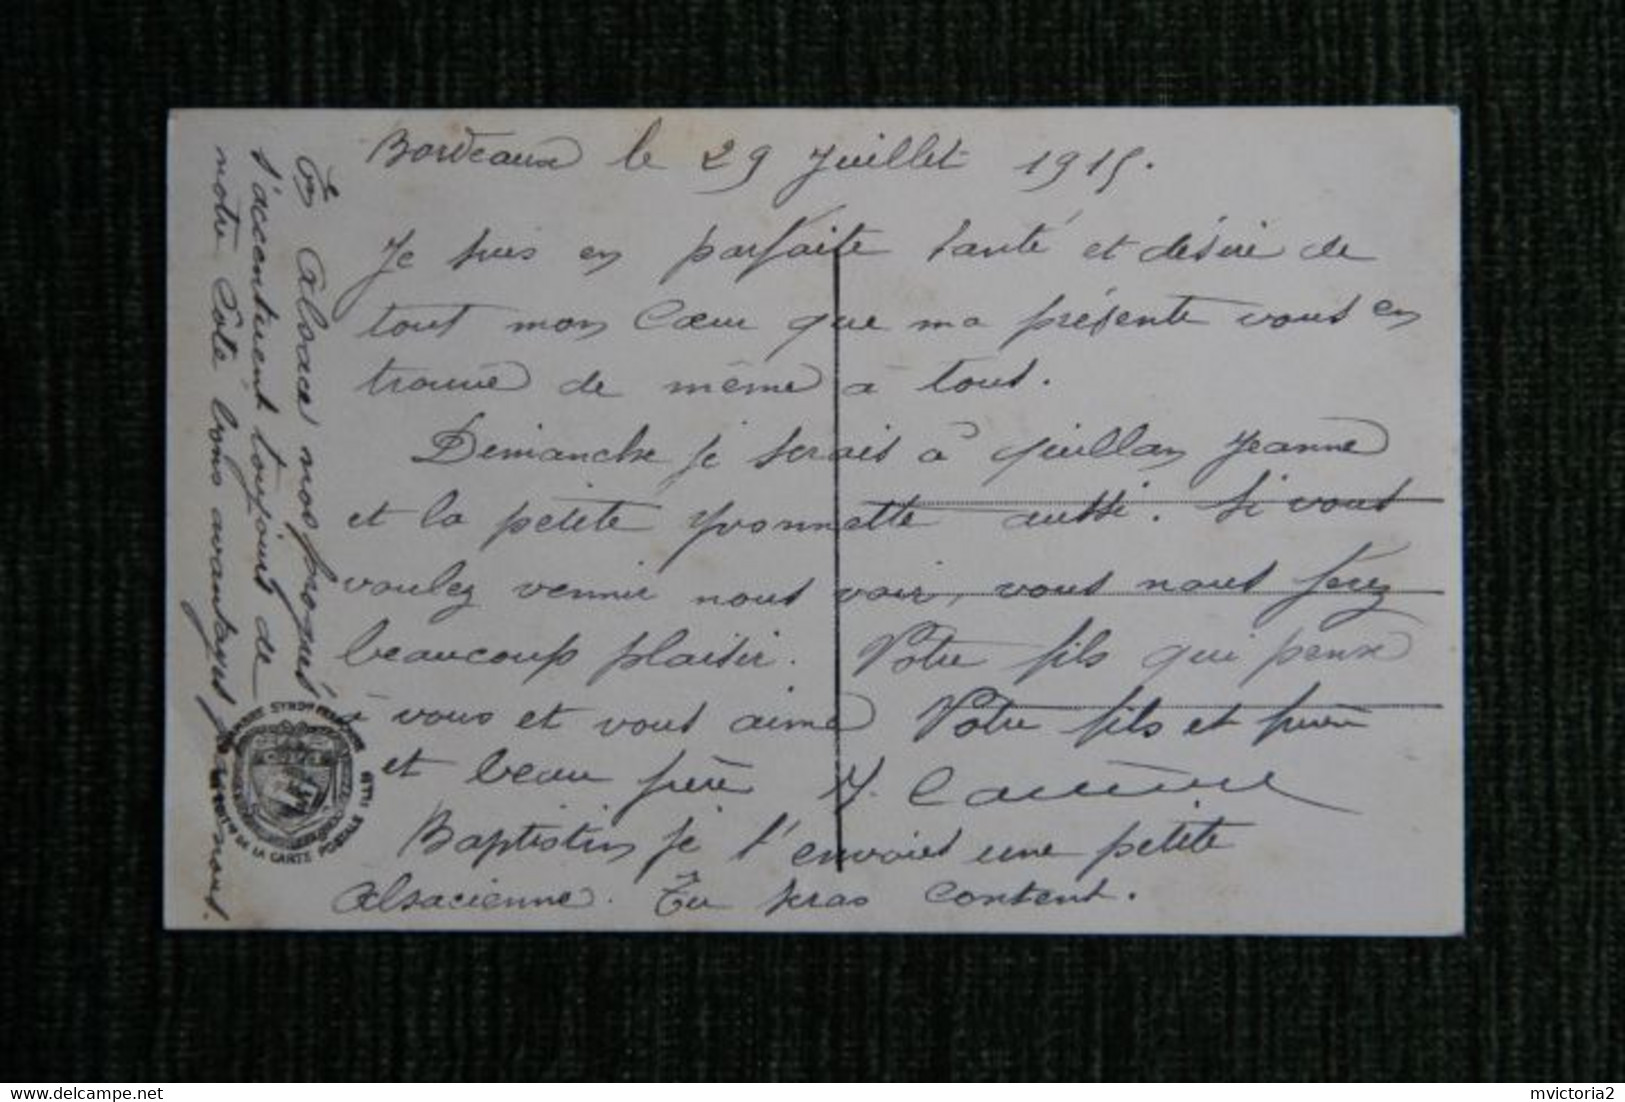 Bordeaux le 29 Juillet 1915.
Je suis en parfaite santé et désire de
tout mon Cœur que ma présente vous en
trouve de même a tous.
Dimanche je serais à Quillan Jeanne
et la petite Yvonnette aussi. Si vous
voulez vennir nous voir, vous nous ferez
beaucoup plaisir. Votre fils qui pense
à vous et vous aime Votre fils et frère
et beau frère J.
Baptistin je t'envoies une petite
alsacienne. Tu seras content.
En Alsace nos progrès
s'accentuent toujours de
notre Côté bons avantages pour nous.
DE LA CARTE POSTALE
mvictoria2